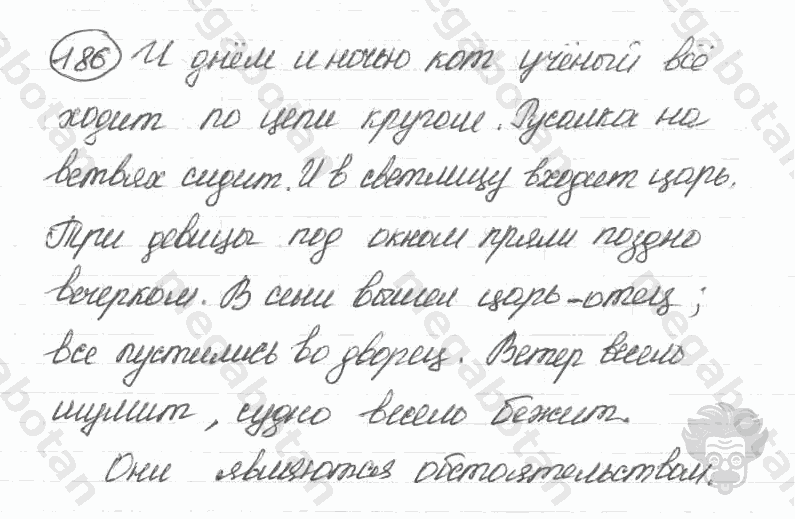 186 И днём и ночью кот учёный всё
ходит по цепи кругом. Русалка на
ветвях сидит. И в светлицу входит царь.
Три девицы под окном пряли поздно
вечерком. В сени вышел царь-отец;
все пустились во дворец. Ветер весело
шумит, судно весело бежит.
Они являются обстоятельством.